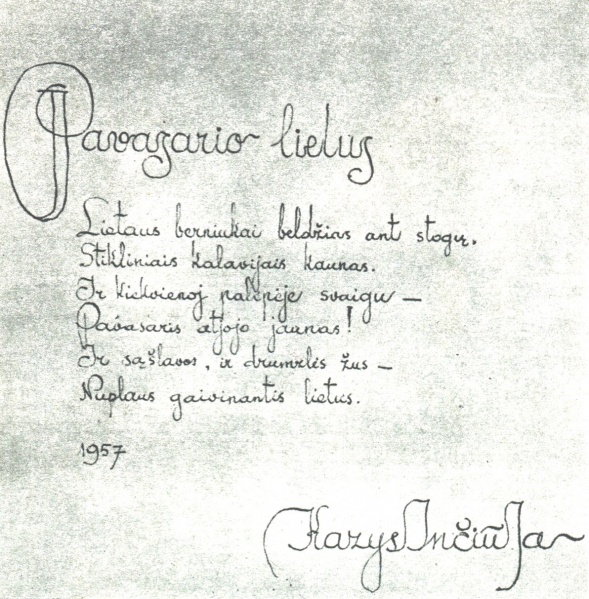 Pavasario lietus
Lietaus berniukai beldžias ant stogų.
Stikliniais kalavijais kaunas.
Ir kiekvienoj palėpėje svaigu —
Pavasaris atjojo jaunas!
Ir sąšlavos, ir drumzlės žus —
Nuplaus gaivinantis lietus.
1957
Kazys Inčiūra